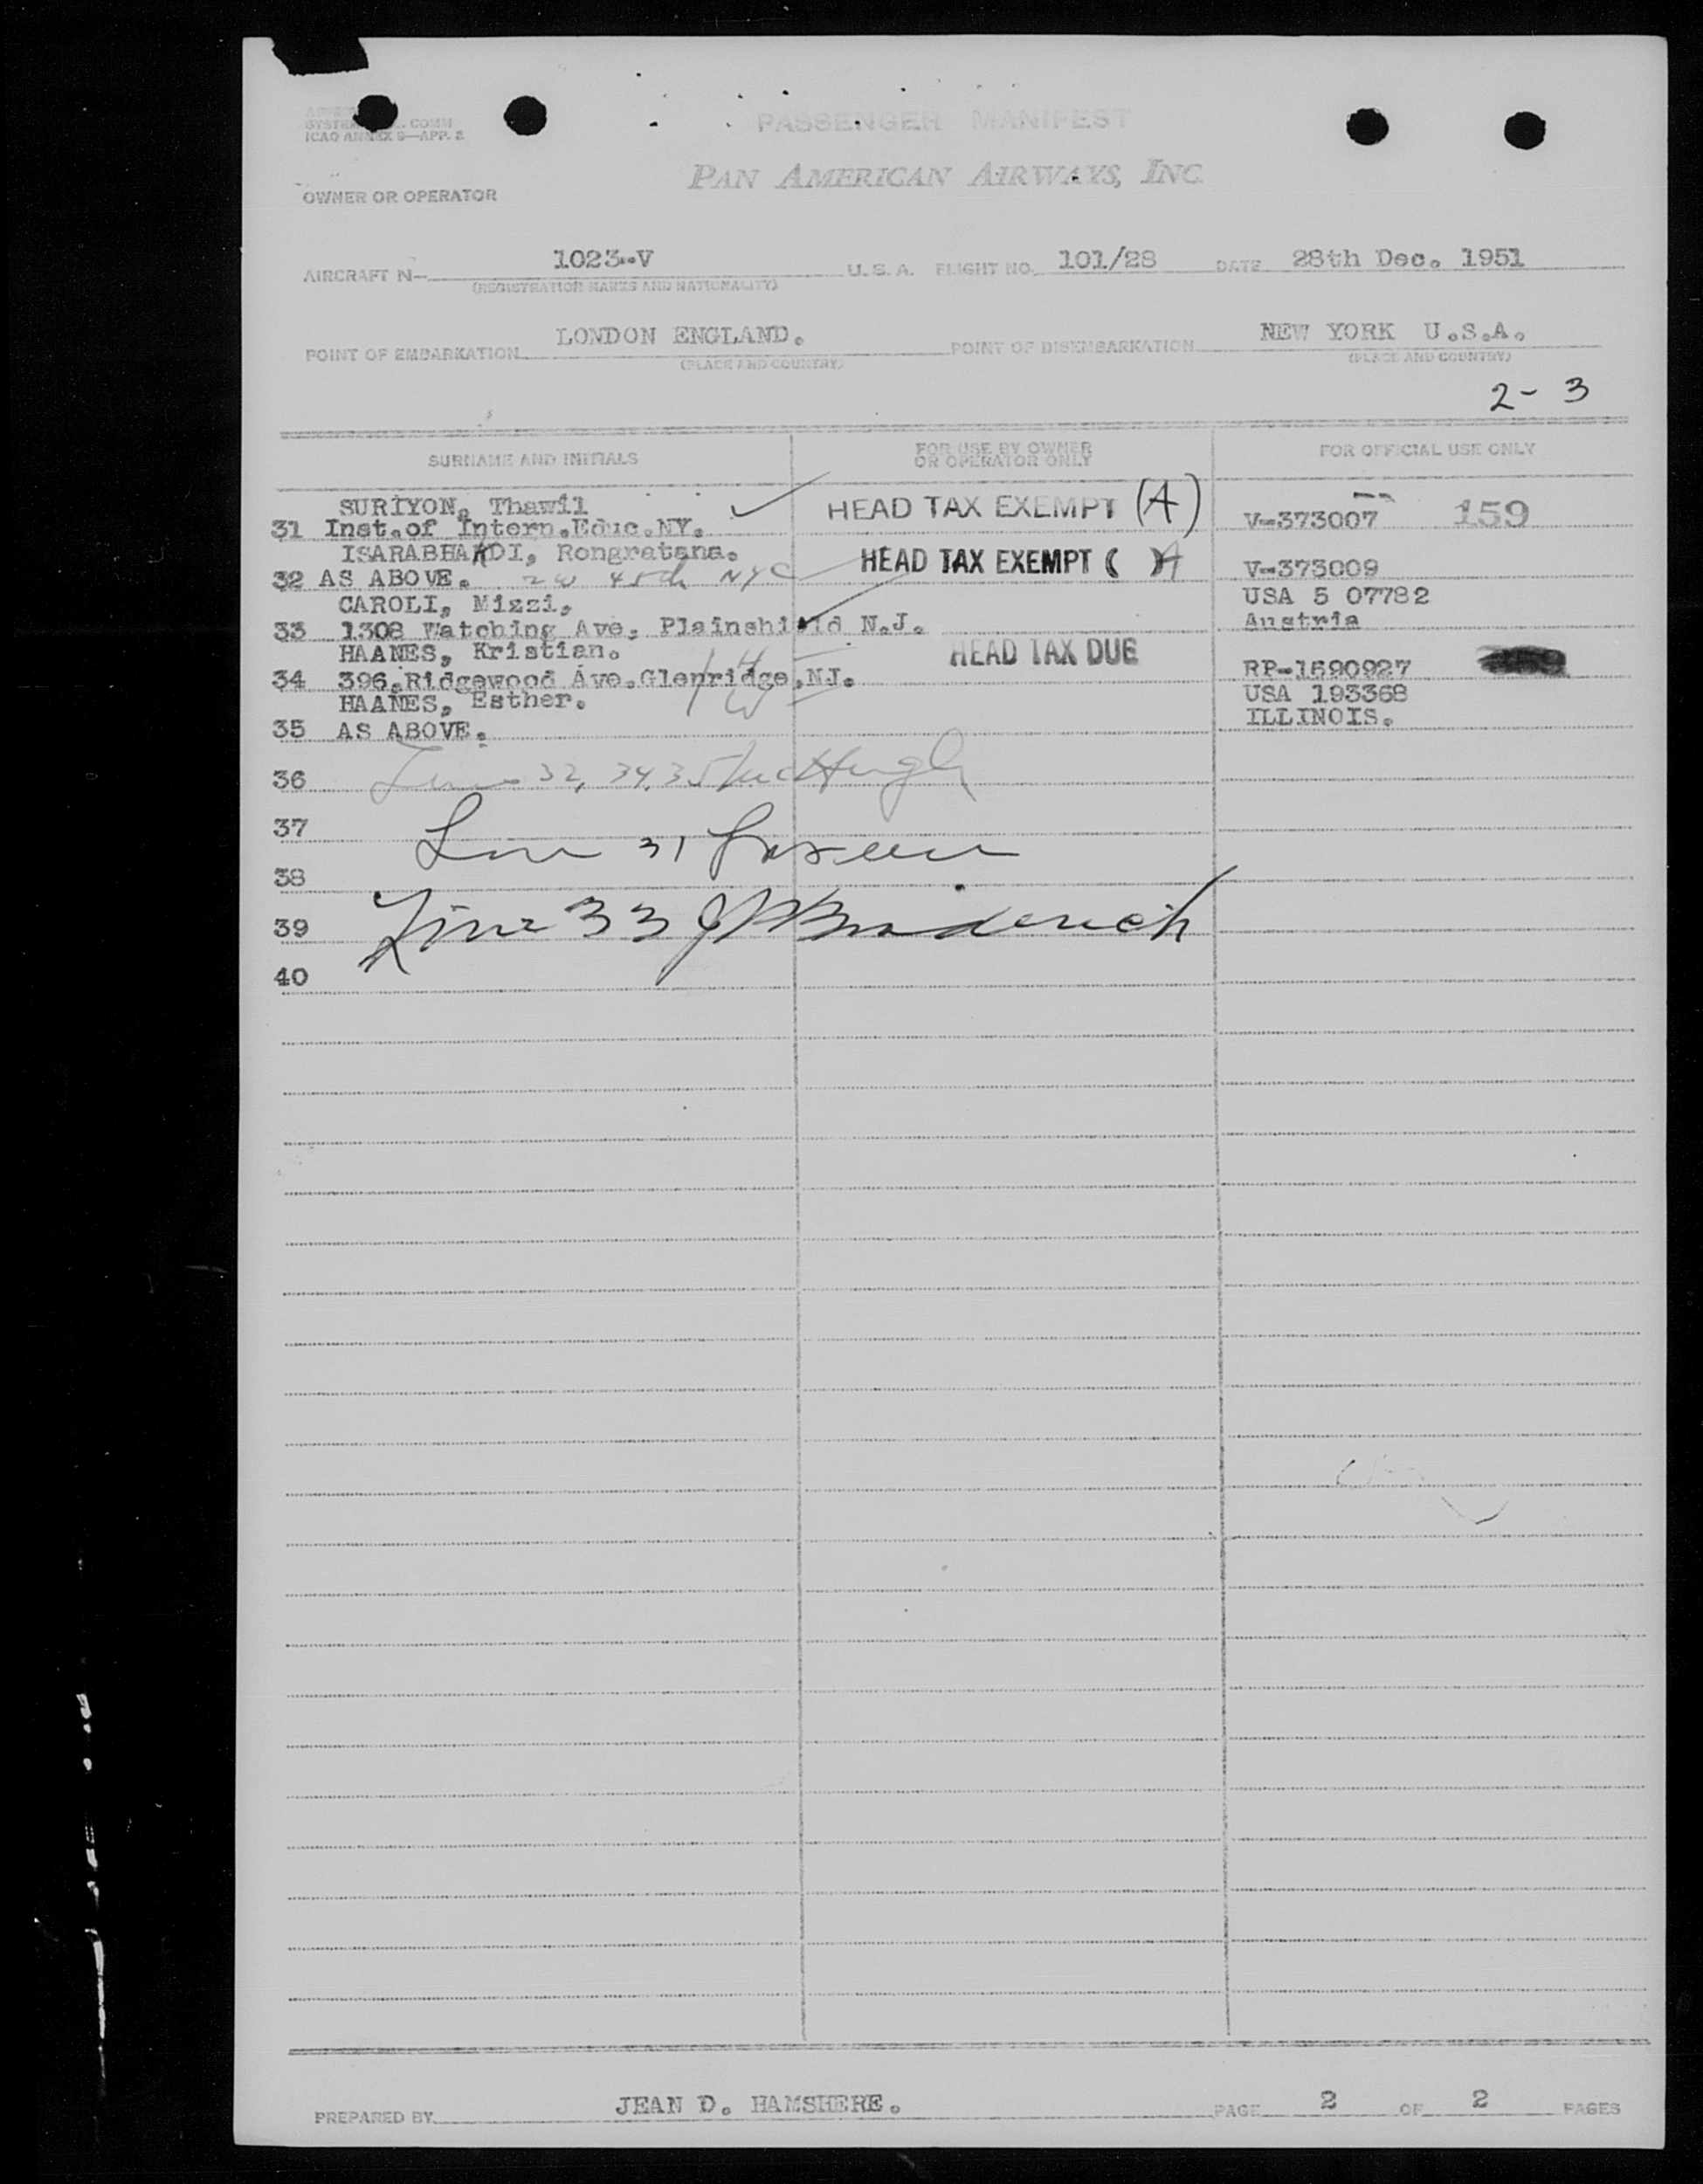 SYSTEM COMM
ICAO ANNEX 9—APP. 2
PASSENGER MANIFEST
PAN AMERICAN AIRWAYS, INC.
OWNER OR OPERATOR
AIRCRAFT N- 1023--V U.S.A. FLIGHT NO. 101/28 DATE 28th Dec. 1951
(REGISTRATION MARKS AND NATIONALITY)
POINT OF EMBARKATION LONDON ENGLAND. POINT OF DISEMBARKATION NEW YORK U.S.A.
(PLACE AND COUNTRY) (PLACE AND COUNTRY)
2- 3
SURNAME AND INITIALS FOR USE BY OWNER OR OPERATOR ONLY FOR OFFICIAL USE ONLY
SURIYON, Thawil HEAD TAX EXEMPT (A)
31 Inst.of Intern.Educ.NY. V-373007 159
ISARABHAKDI, Rongratana. HEAD TAX EXEMPT ( A
32 AS ABOVE. 2 W 45th NYC V-373009
CAROLI, Mizzi, USA 5 07782
33 1308 Watching Ave, Plainshield N.J. Austria
HAANES, Kristian. HEAD TAX DUE
34 396.Ridgewood Ave.Glenridge,NJ. RP-1590927
HAANES, Esther. USA 193368
35 AS ABOVE. ILLINOIS.
36 Line 32, 34, 35 McHugh
37 Line 31
38
39 Line 33
40
PREPARED BY JEAN D. HAMSHERE. PAGE 2 OF 2 PAGES